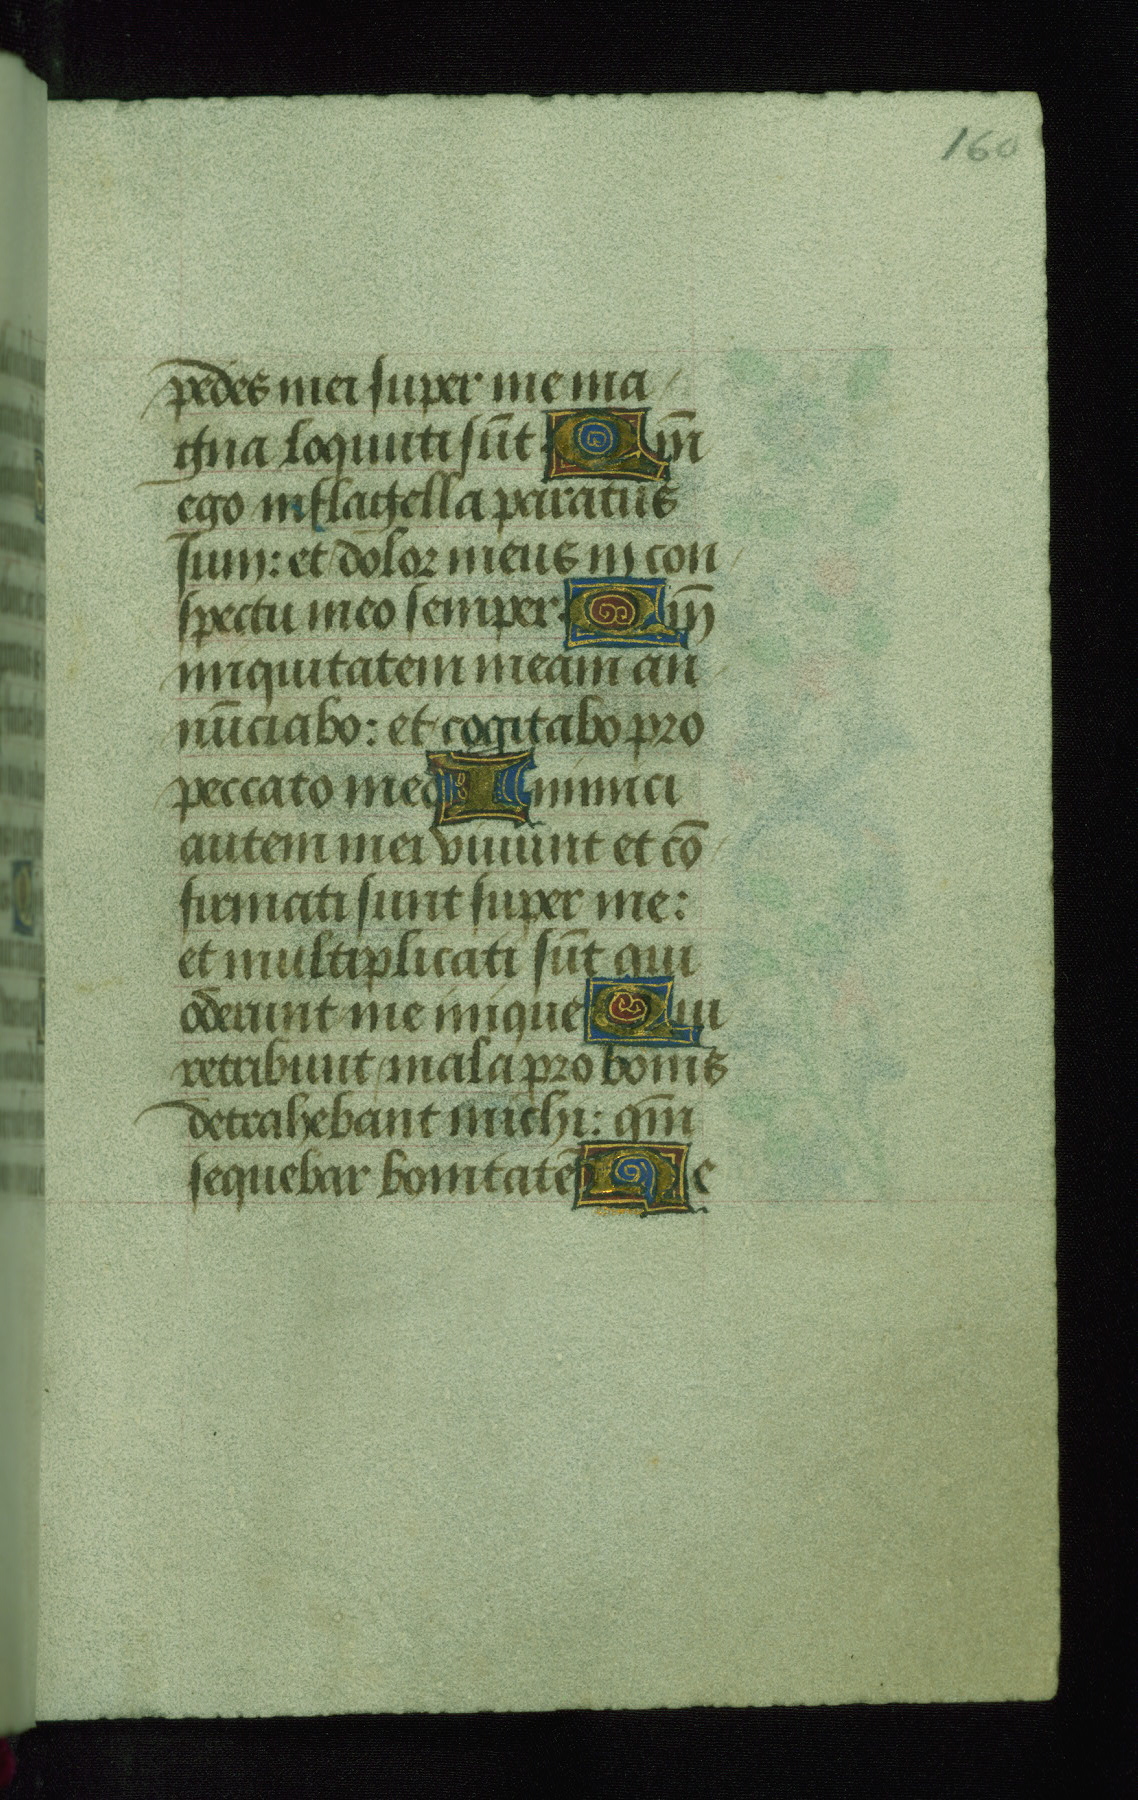 160
pedes mei super me ma
gna loquuti sūt Qm̄
ego in flagella paratus
sum: et dolor meus in con
spectu meo semper. Qm̄
iniquitatem meam an
nūciabo: et cogitabo pro
peccato meo Inimici
autem mei viuunt et cō
firmati sunt super me:
et multiplicati sūt qui
oderunt me inique Qui
retribunt mala pro bonis
detrahebant michi: qm̄
sequebar bonitatē Ne